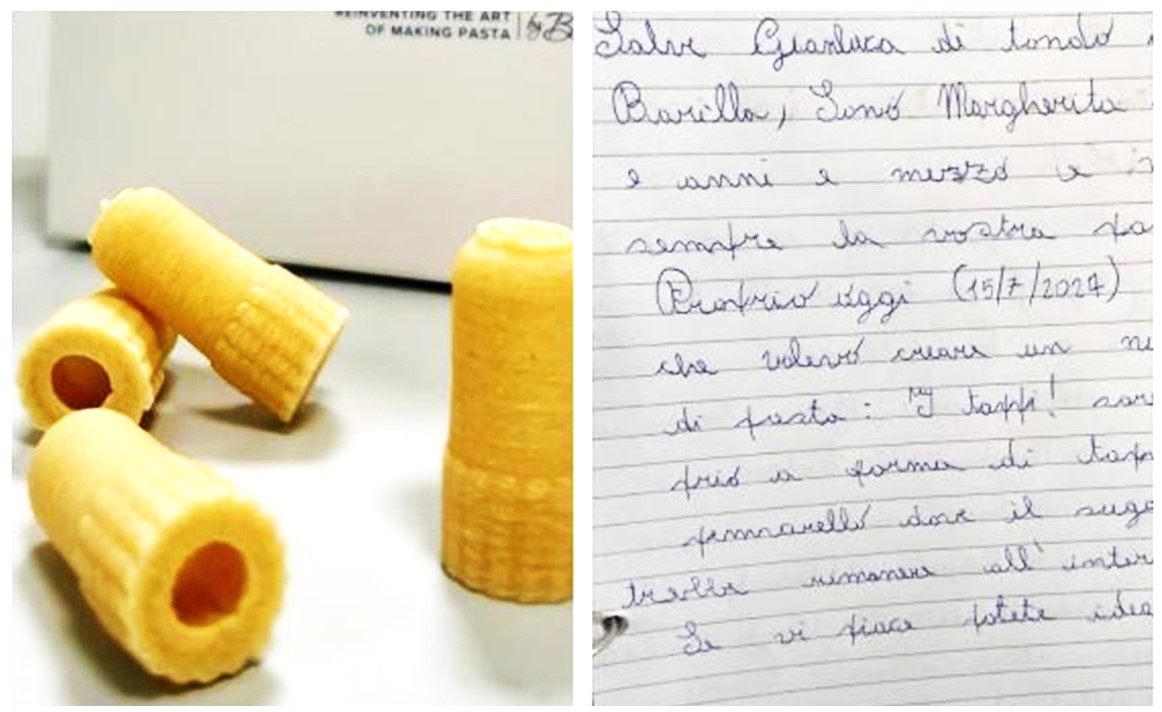 REINVENTING THE ART
OF MAKING PASTA
by B
Salve Gianluca di tondo
Barilla, Sono Margherita
e anni e mezzo e
sempre la vostra pa
Proprio oggi (15/7/2024)
che volevo creare un
di pasta: "I tappi! sar
prio a forma di tapp
pennarello dove il sugo
trebbe rimanere all'inter
Se vi piace potete idea